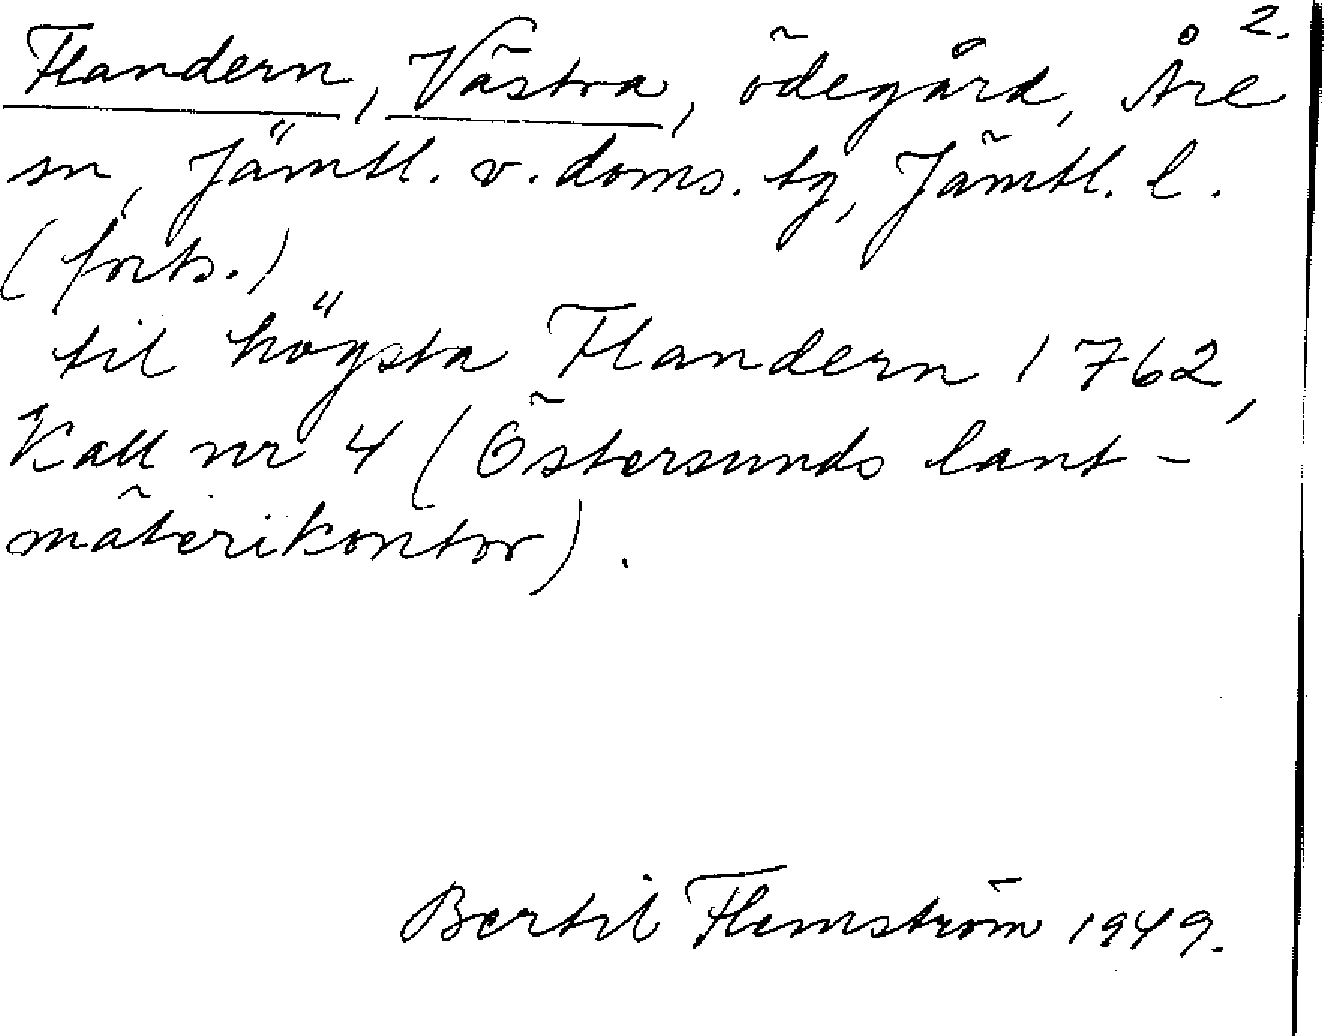 2.
Flandern, Västra, ödegård, Åre
sn, Jämtl. v. doms. tg, Jämtl. l.
(forts.)
til högsta Flandern 1762,
Kall nr 4 (Östersunds lant-
mäterikontor).
Bertil Flemström 1949.